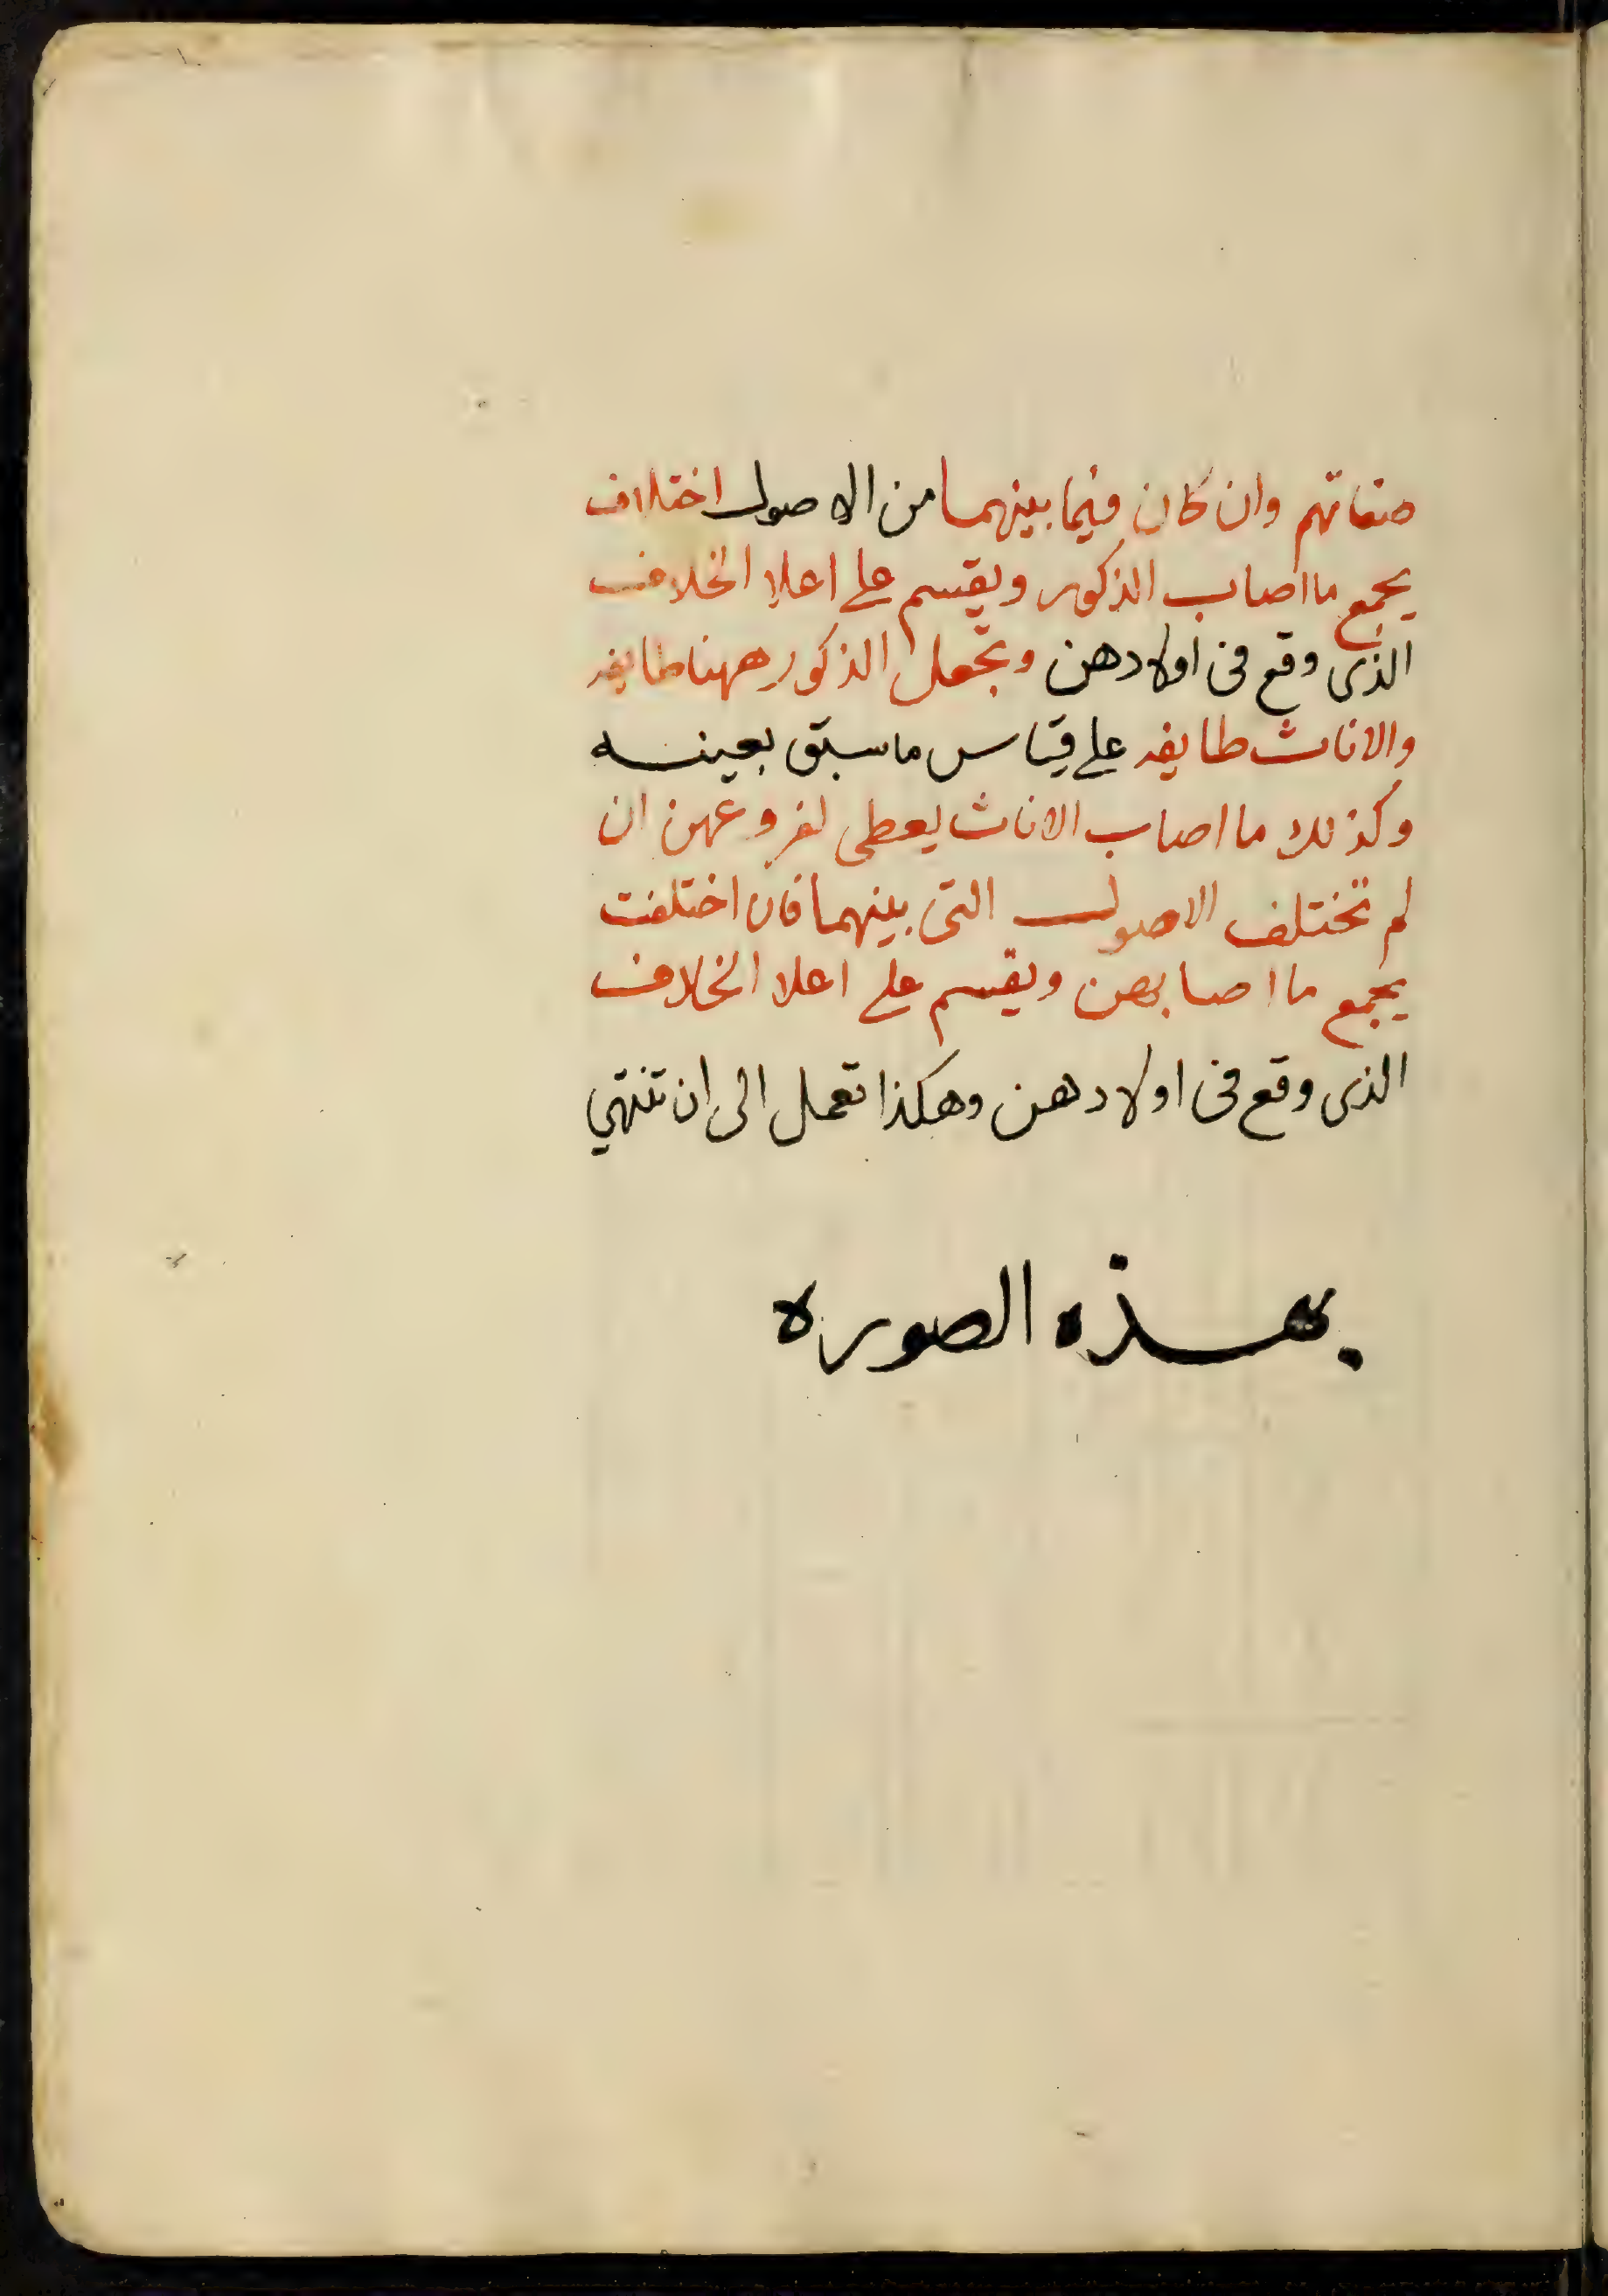 صفاتهم وان كان فيما بينهما من الاصول اختلاف
يجمع ما اصاب الذكور ويقسم على اعلا الخلاف
الذى وقع فى اولادهن وتجعل الذكور ههنا طايفه
والاناث طايفه على قياس ما سبق بعينه
وكذلك ما اصاب الاناث يعطى لفروعهن ان
لم تختلف الاصول التى بينهما فان اختلفت
يجمع ما اصابهن ويقسم على اعلا الخلاف
الذى وقع فى اولادهن وهكذا تعمل الى ان تنتهي
بهذه الصوره